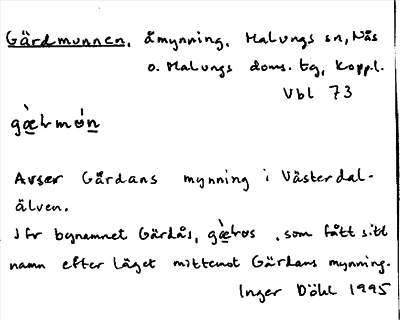 Gärdmunnen, åmynning. Malungs sn, Nås
o. Malungs doms. tg, Koppl.
Vbl 73
gæ̀ɽmón
Avser Gärdans mynning i Västerdal-
älven.
Jfr bynamnet Gärdås, gæ̀ɽos, som fått sitt
namn efter läget mittemot Gärdans mynning.
Inger Döhl 1995